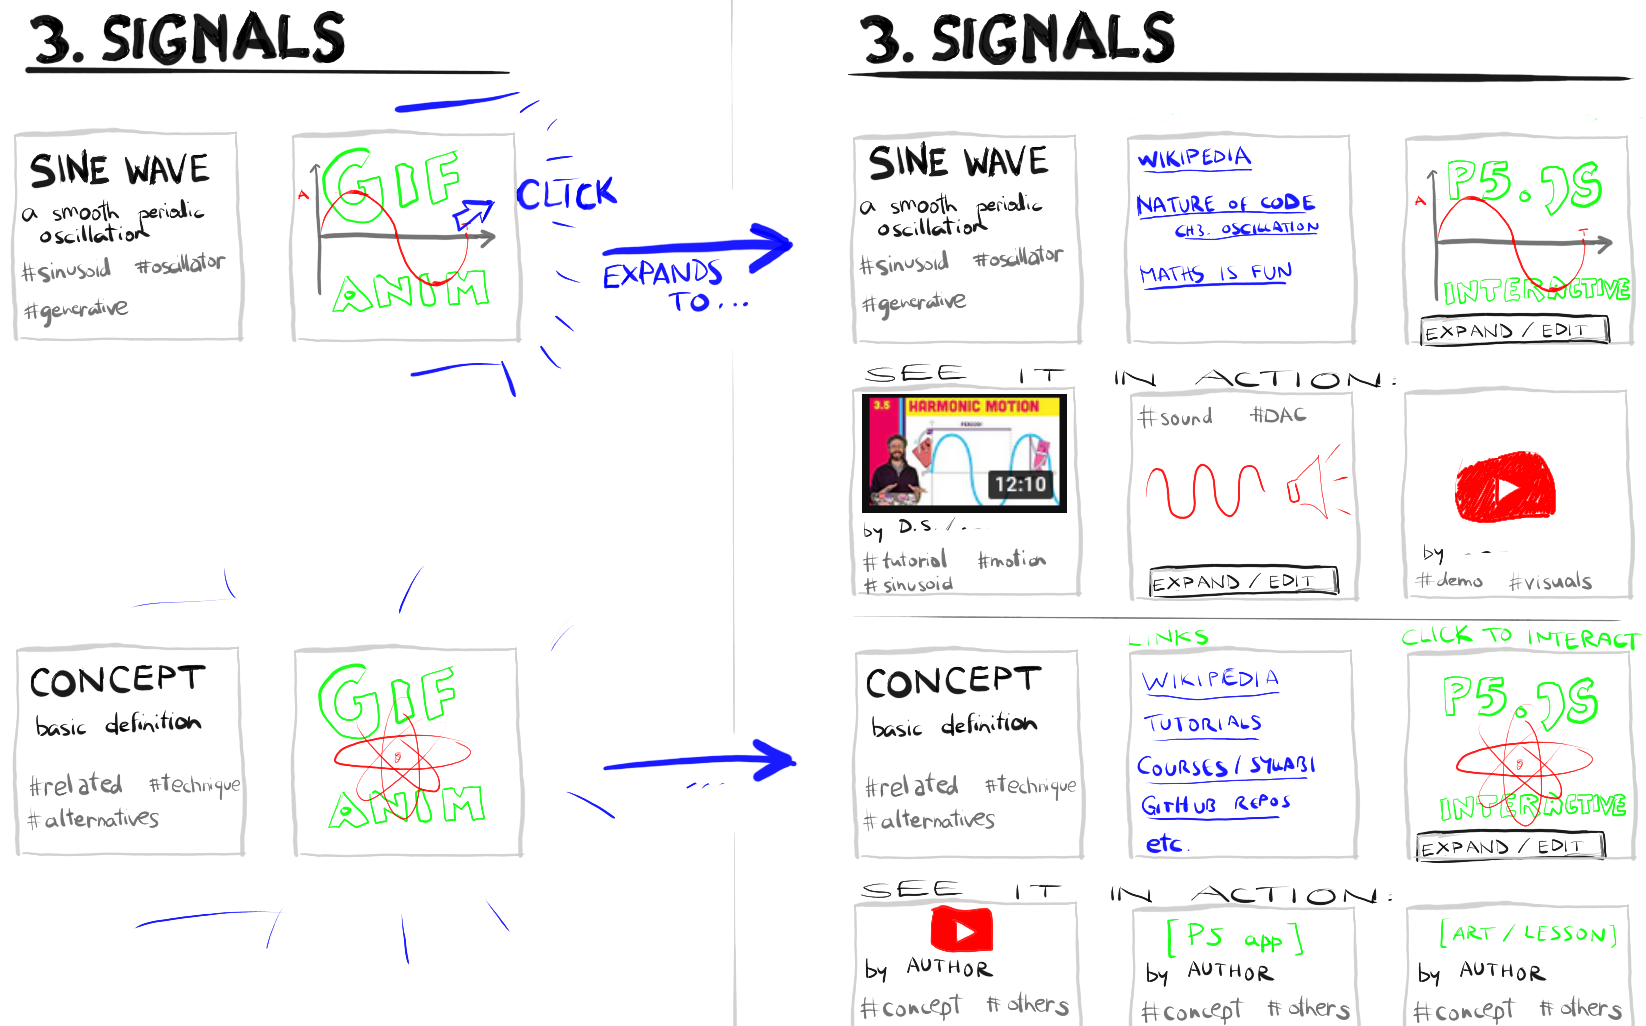 3. SIGNALS
SINE WAVE
a smooth periodic
oscillation
#sinusoid #oscillator
#generative
GIF
A
ANIM
CLICK
EXPANDS
TO...
CONCEPT
basic definition
#related #technique
#alternatives
GIF
ANIM
3. SIGNALS
SINE WAVE
a smooth periodic
oscillation
#sinusoid #oscillator
#generative
WIKIPEDIA
NATURE OF CODE
CH3. OSCILLATION
MATHS IS FUN
P5.JS
A
T
INTERACTIVE
EXPAND / EDIT
SEE IT IN ACTION:
3.5 HARMONIC MOTION
PERIOD
12:10
by D.S. / . - -
#tutorial #motion
#sinusoid
#sound #DAC
EXPAND / EDIT
by - - - -
#demo #visuals
CONCEPT
basic definition
#related #technique
#alternatives
LINKS
WIKIPEDIA
TUTORIALS
COURSES / SYLLABI
GITHUB REPOS
etc.
CLICK TO INTERACT
P5.JS
INTERACTIVE
EXPAND / EDIT
SEE IT IN ACTION:
by AUTHOR
#concept #others
[P5 app]
by AUTHOR
#concept #others
[ART / LESSON]
by AUTHOR
#concept #others